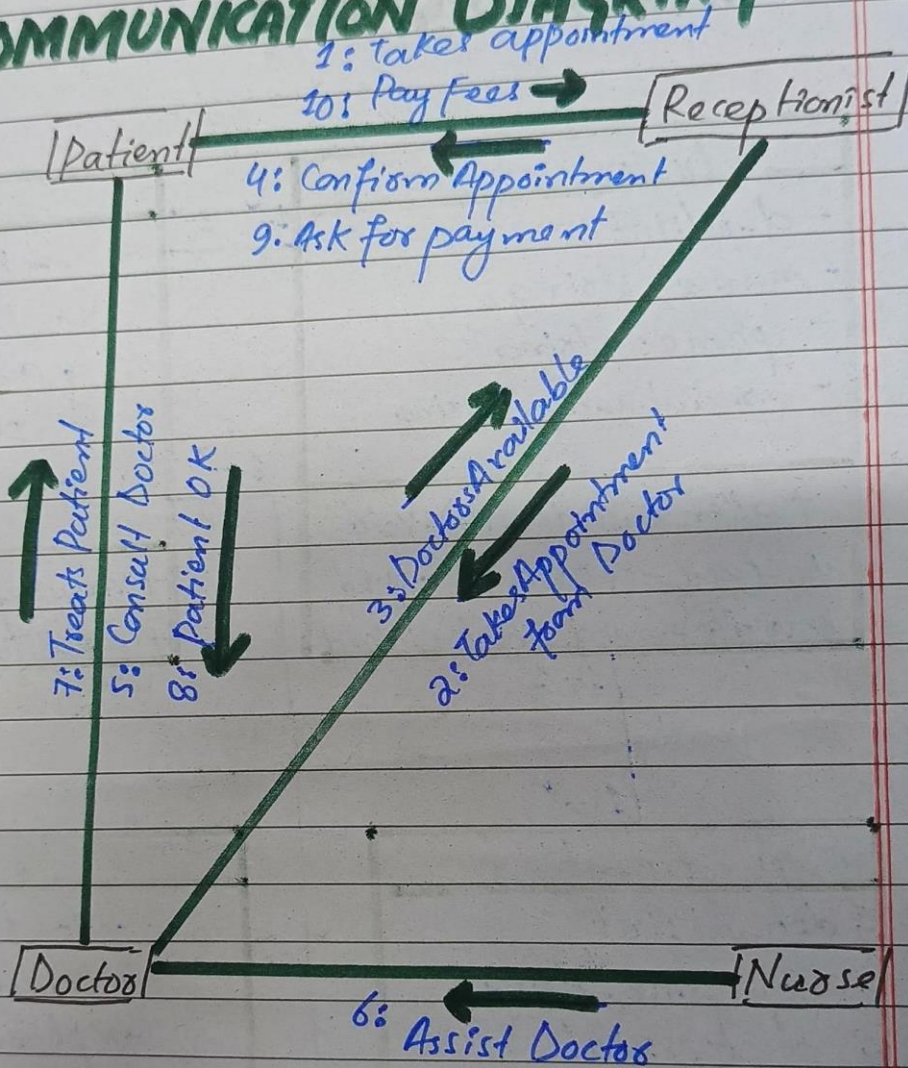 COMMUNICATION DIAGRAM
1: Takes appointment
10: Pay Fees
Patient
Receptionist
4: Confirm Appointment
9: Ask for payment
7: Treats Patient
5: Consult Doctor
8: Patient OK
3: Doctors Available
2: Takes Appointment
from Doctor
Doctor
Nurse
6:
Assist Doctor